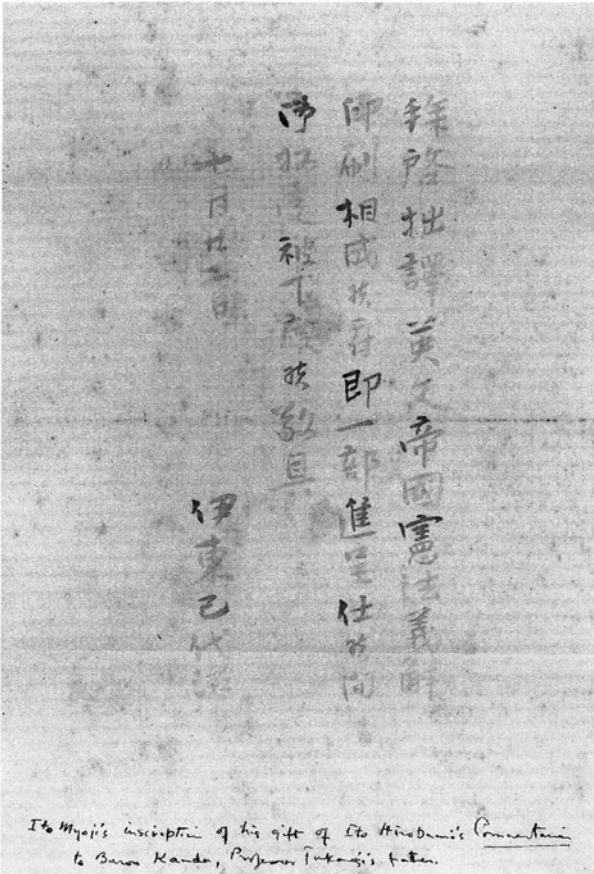 拝啓拙譯英文帝國憲法義解
印刷相成候ニ付即一部進呈仕候間
御照覧被下度候敬具
七月廿二日
伊東巳代治
Ito Myoji's inscription of his gift of Ito Hirobumi's Commentaries
to Baron Kanda, Professor Tukuoji's father.